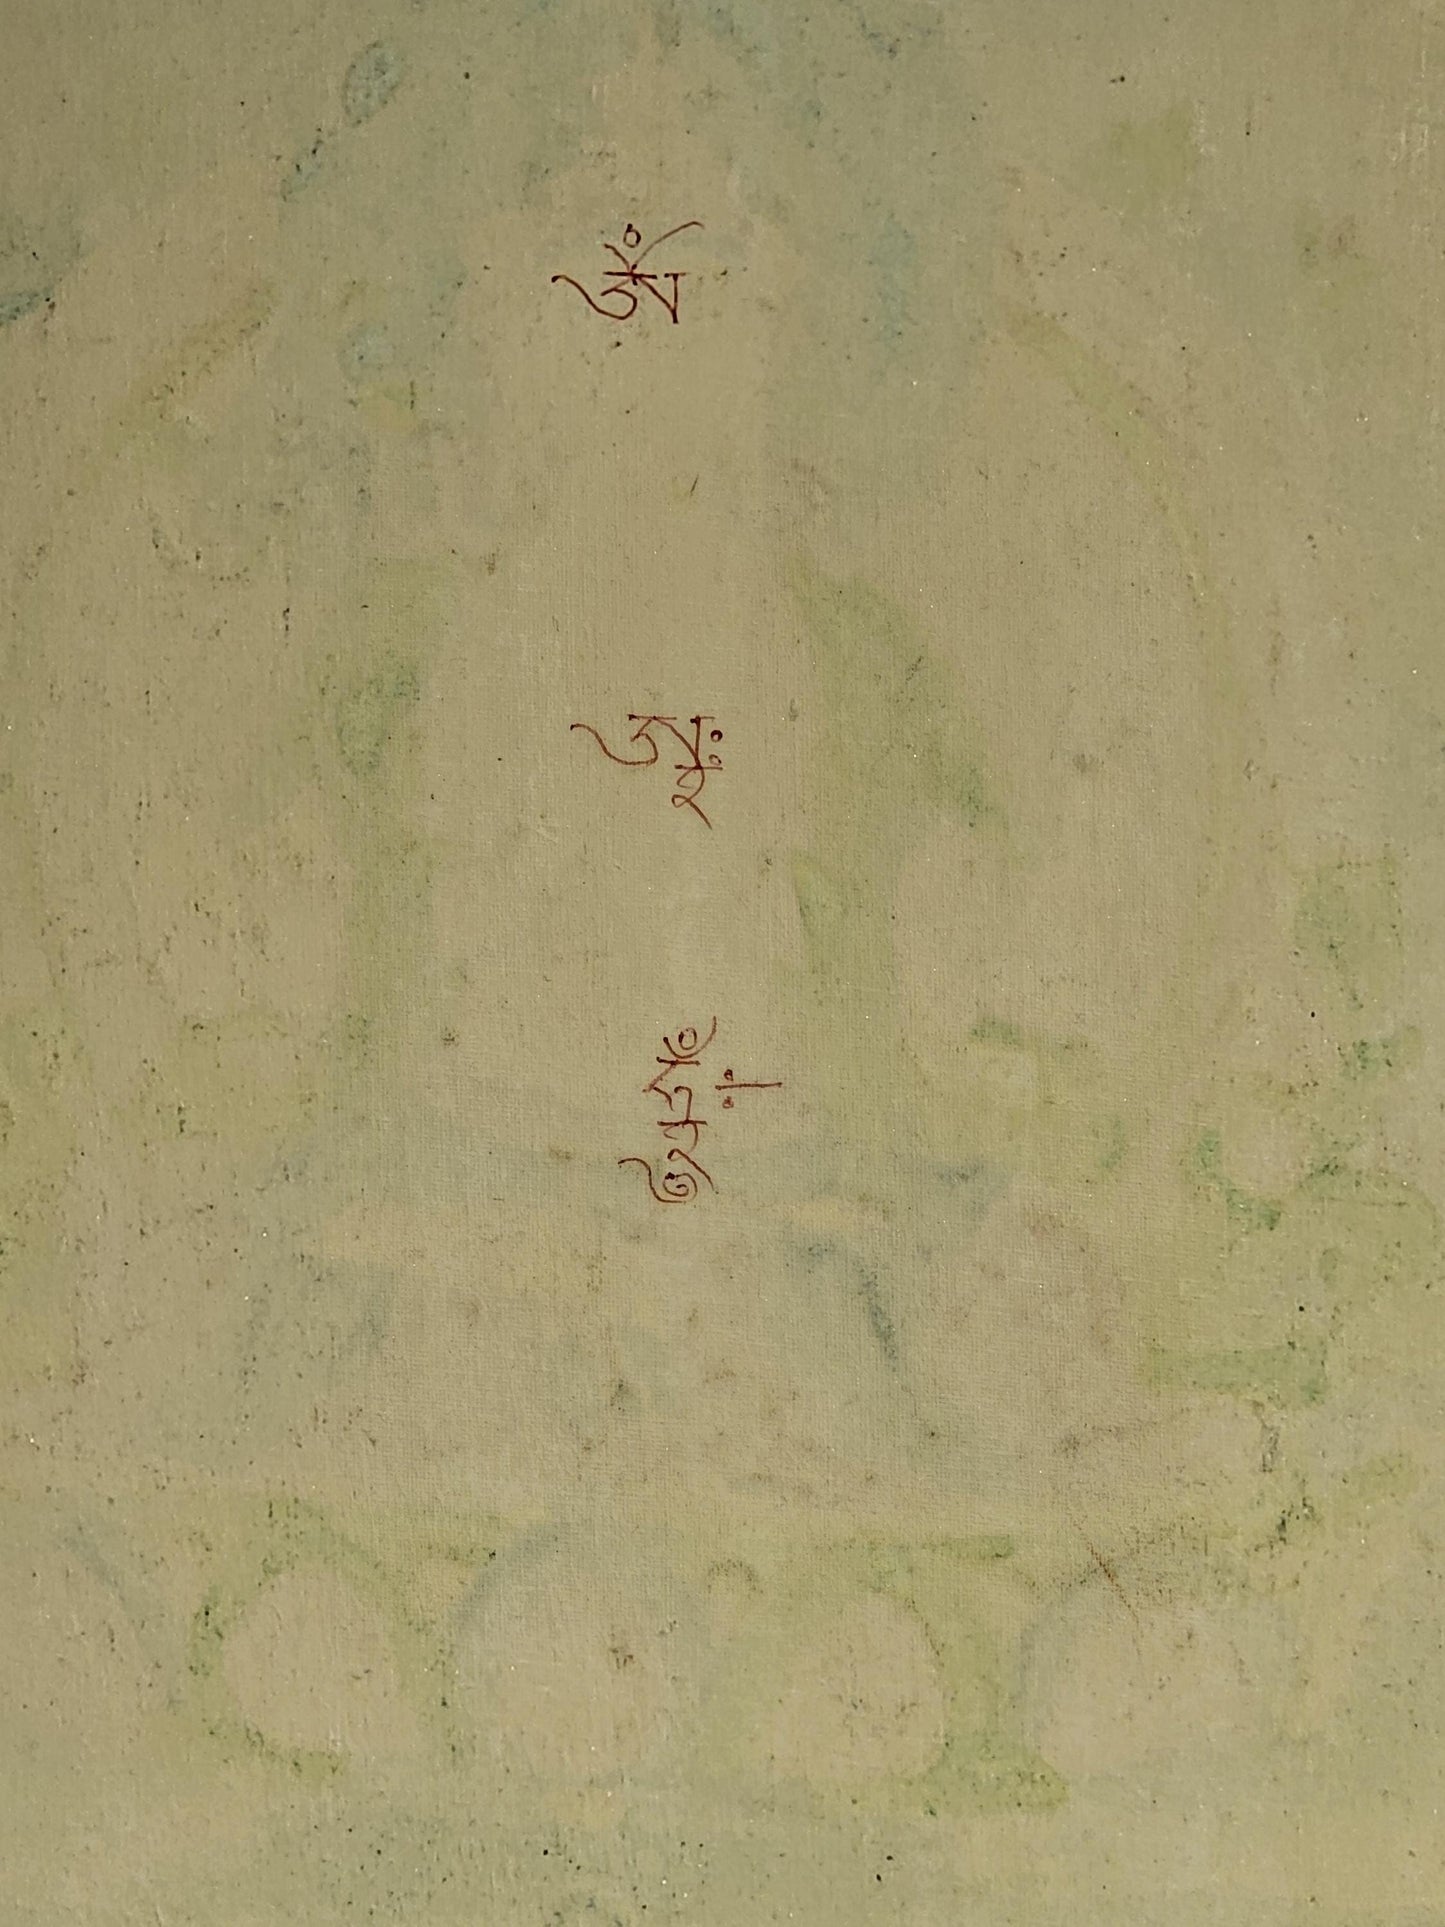 ཨོཾ
ཨཱཿ
ཧཱུྃ༔